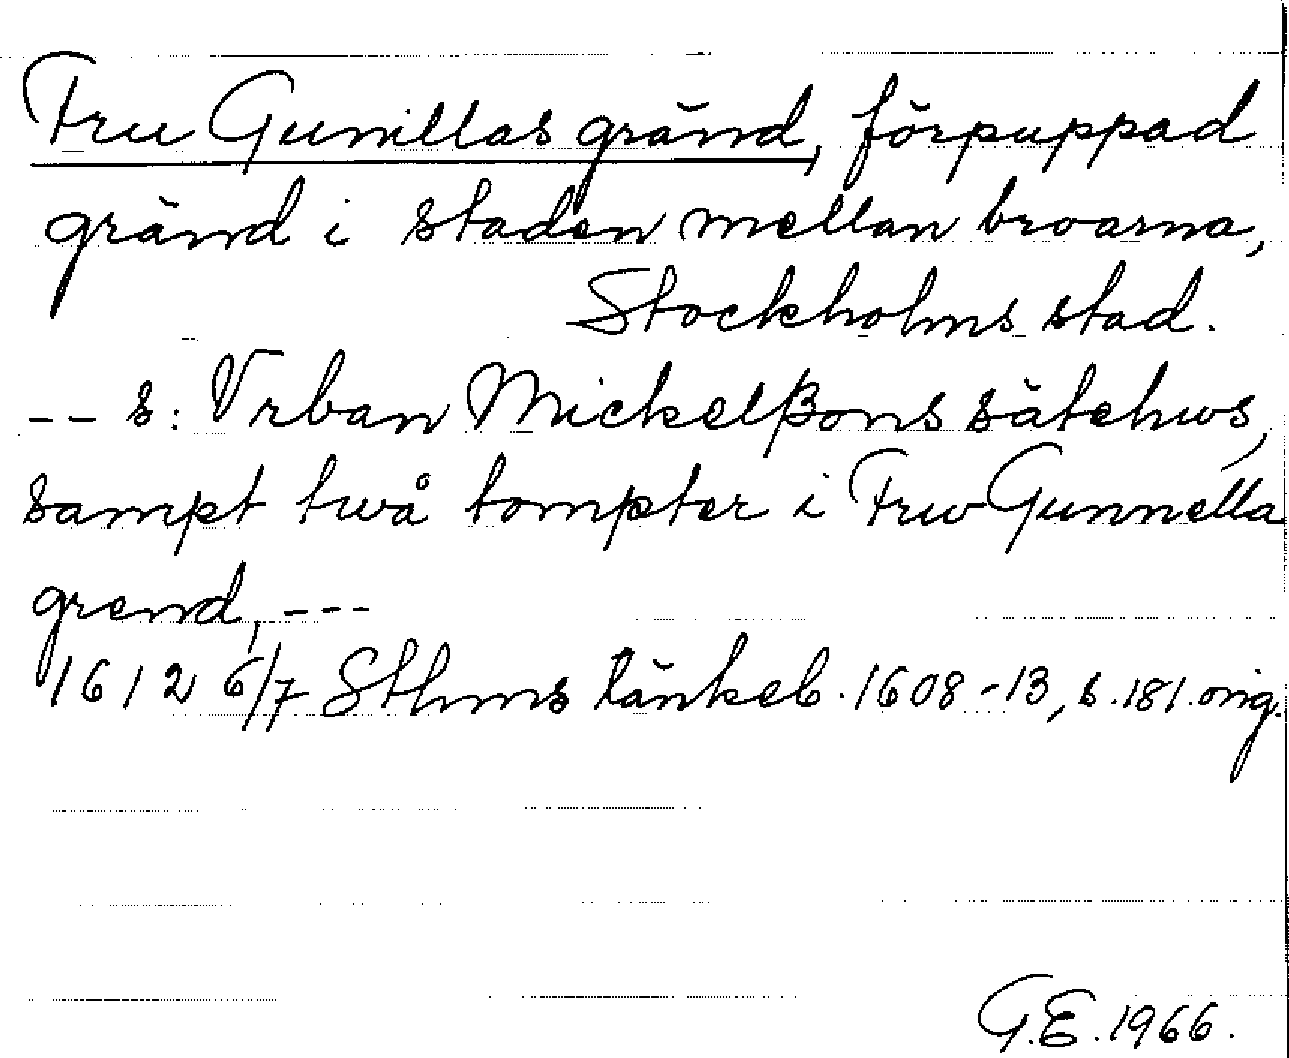 Fru Gunillas gränd, förpuppad
gränd i staden mellan broarna,
Stockholms stad.
-- s: Vrban Mickelßons sätehws,
sampt twå tompter i Frw Gunnella
grend, ---
1612 6/7 Sthms tänkeb. 1608-13, s. 181. orig.
G.E. 1966.